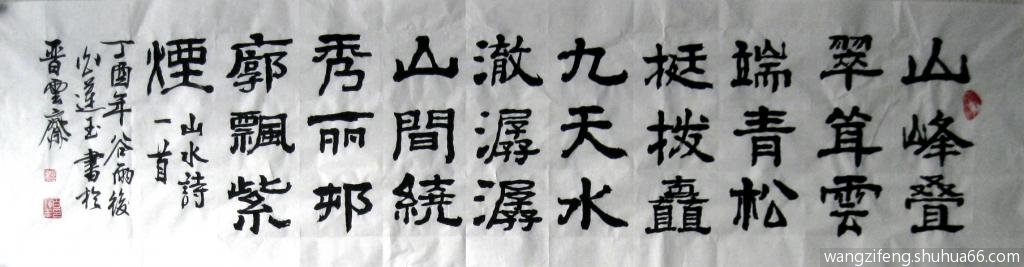 山峰叠
翠茸雲
端青松
挺拔矗
九天水
澈潺潺
山間繞
秀丽邨
廓飄紫
煙
山水詩
一首
丁酉年谷雨後
蓮玉書於
晋雲齋
wangzifeng.shuhua66.com